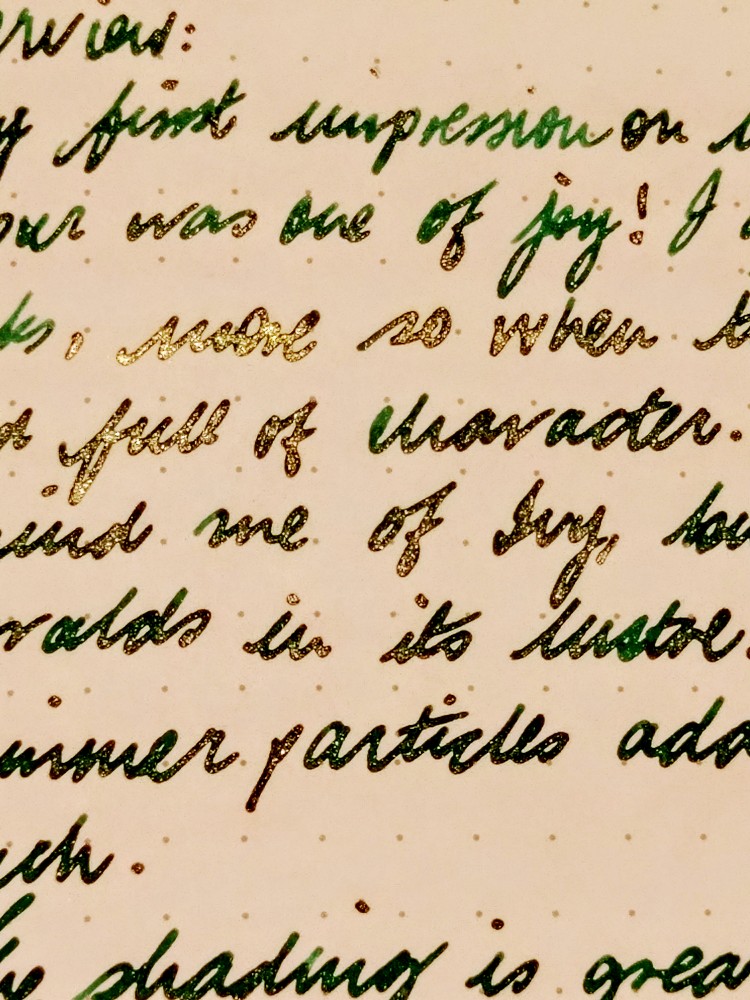 erview:
y first impression on i
our was one of joy! I
ks, more so when
full of character.
ind me of Ivy,
ralds in its lustre.
immer particles add
uch.
shading is grea